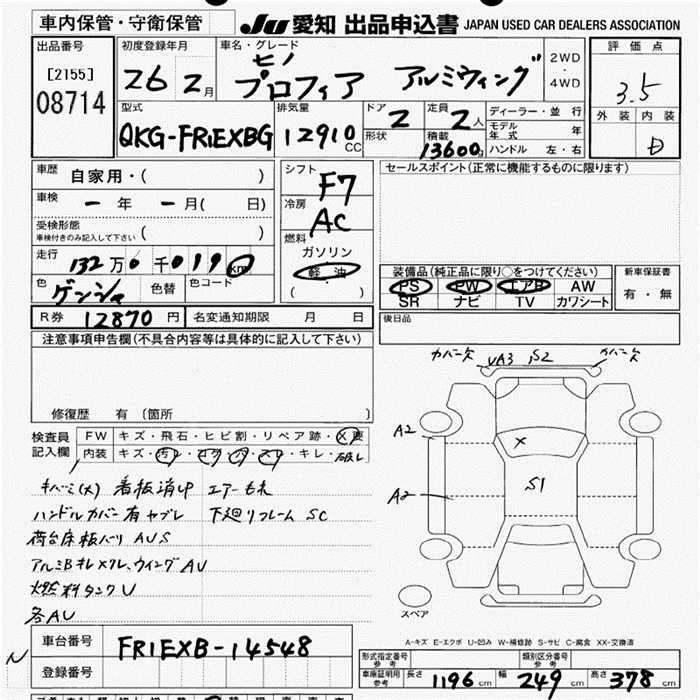 車内保管・守衛保管 JU 愛知 出品申込書 JAPAN USED CAR DEALERS ASSOCIATION
出品番号 初度登録年月 車名・グレード 2WD ・ 4WD 評価点
[2155] 08714 26 2月 ヒノ プロフィア アルミウィング 3.5
型式 排気量 ドア 2 定員 2人 ディーラー・並行 外装 内装
QKG-FR1EXBG 12910 CC 形状 積載 13600 モデル年式 年 D
ハンドル 左・右
車歴 自家用・( ) シフト F7 セールスポイント(正常に機能するものに限ります)
車検 ー年 ー月( 日) 冷房 AC
受検形態 車検付きのみ記入して下さい ( )
燃料 ガソリン 軽油 ( )
走行 132万0千019km
装備品(純正品に限り○をつけてください) 新車保証書
PS PW エアB AW 有・無
SR ナビ TV カワシート
色 ゲンシャ 色替 色コード
R券 12870円 名変通知期限 月 日 後日品
注意事項申告欄(不具合内容等は具体的に記入して下さい)
修復歴 有(箇所 )
カバー欠 UA3 S2 カバー欠
A2 X
A2 S1
検査員記入欄 FW キズ・飛石・ヒビ割・リペア跡・X要
内装 キズ・汚レ・コゲ・穴・スレ・キレ・
看板消し
ハンドルカバー有 ヤブレ 下廻りフレーム SC
荷台床板 AUS
ウィング AU
燃料タンクU
各AU
スペア
A-キズ E-エクボ U-凹み W-補修跡 S-サビ C-腐食 XX-交換済
車台番号 FR1EXB-14548
登録番号
形式指定番号 参考 類別区分番号 参考
車庫証明用 参考 長さ 1196 cm 幅 249 cm 高さ 378 cm